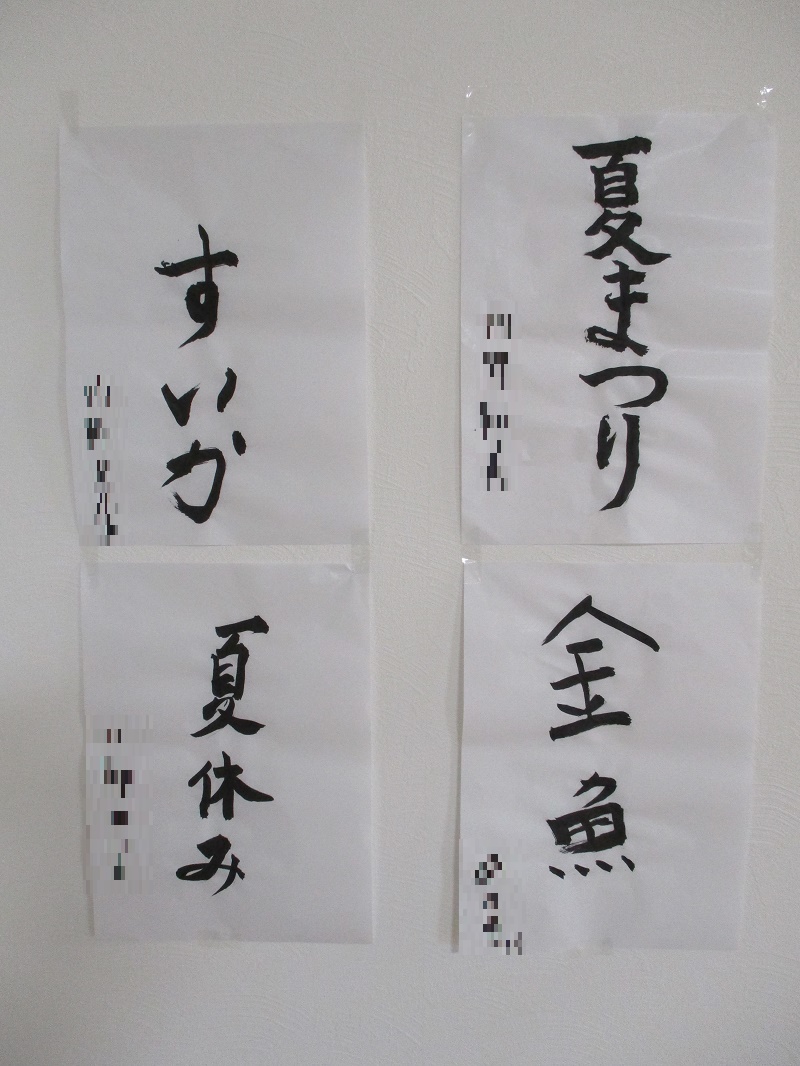 夏まつり
すいか
金魚
夏休み